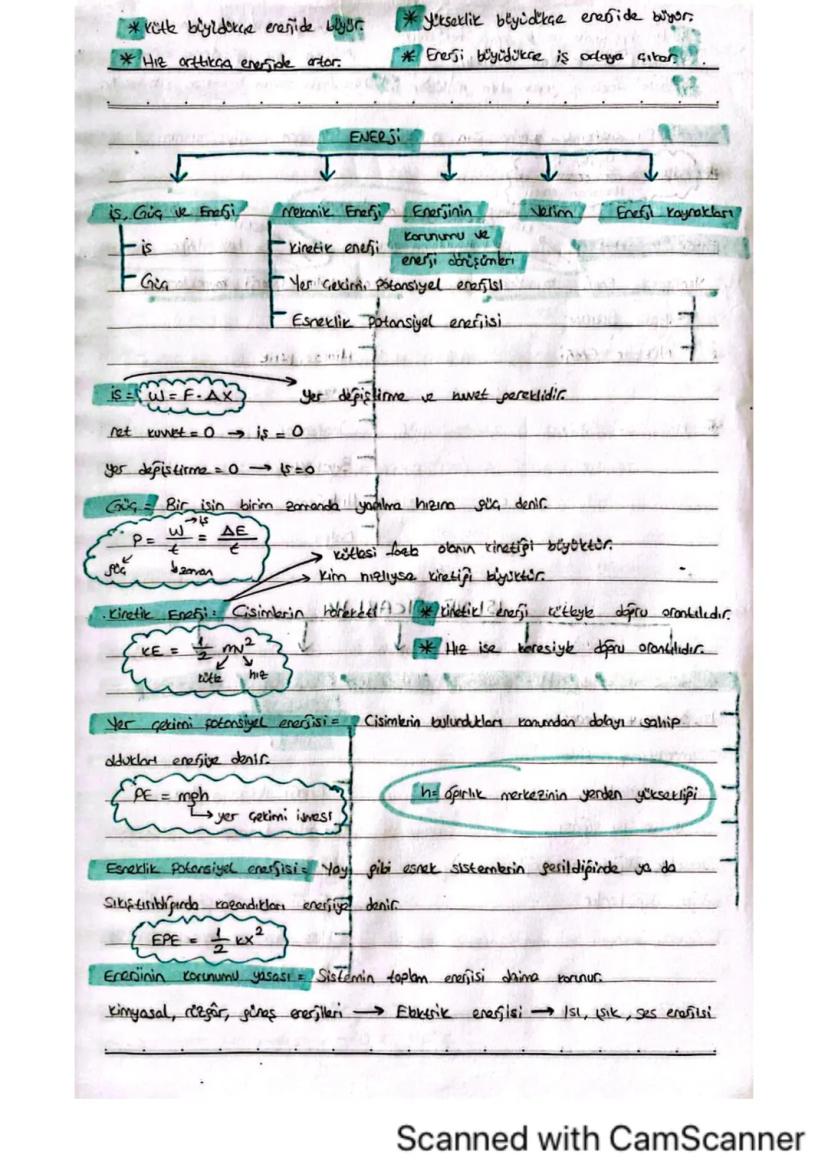 * Kütle büyüdükçe enerjide büyür. * Yükseklik büyüdükçe enerjide büyür.
* Hız arttıkça enerjide artar. * Enerji büyüdükçe iş ortaya çıkar.
ENERJİ
İş, Güç ve Enerji Mekanik Enerji Enerjinin korunumu ve enerji dönüşümleri Verim Enerji Kaynakları
iş
Güç
Kinetik enerji
Yer Çekimi potansiyel enerjisi
Esneklik potansiyel enerjisi
iş = W = F . ΔX yer değiştirme ve kuvvet gereklidir.
net kuvvet = 0 → iş = 0
yer değiştirme = 0 → iş = 0
Güç = Bir işin birim zamanda yapılma hızına güç denir.
P = W/t = ΔE/t
iş
güç zaman
kütlesi fazla olanın kinetiği büyüktür.
kim hızlıysa kinetiği büyüktür.
Kinetik Enerji = Cisimlerin hareketi * kinetik enerji kütleyle doğru orantılıdır.
KE = 1/2 mv² * Hız ise karesiyle doğru orantılıdır.
kütle hız
Yer çekimi potansiyel enerjisi = Cisimlerin bulundukları konumdan dolayı sahip
oldukları enerjiye denir.
PE = mgh h = ağırlık merkezinin yerden yüksekliği
yer çekimi ivmesi
Esneklik potansiyel enerjisi = Yay gibi esnek sistemlerin gerildiğinde ya da
sıkıştırıldığında kazandıkları enerjiye denir.
EPE = 1/2 kx²
Enerjinin korunumu yasası = Sistemin toplam enerjisi daima korunur.
Kimyasal, rüzgâr, güneş enerjileri → Elektrik enerjisi → Isı, ışık, ses enerjisi
Scanned with CamScanner